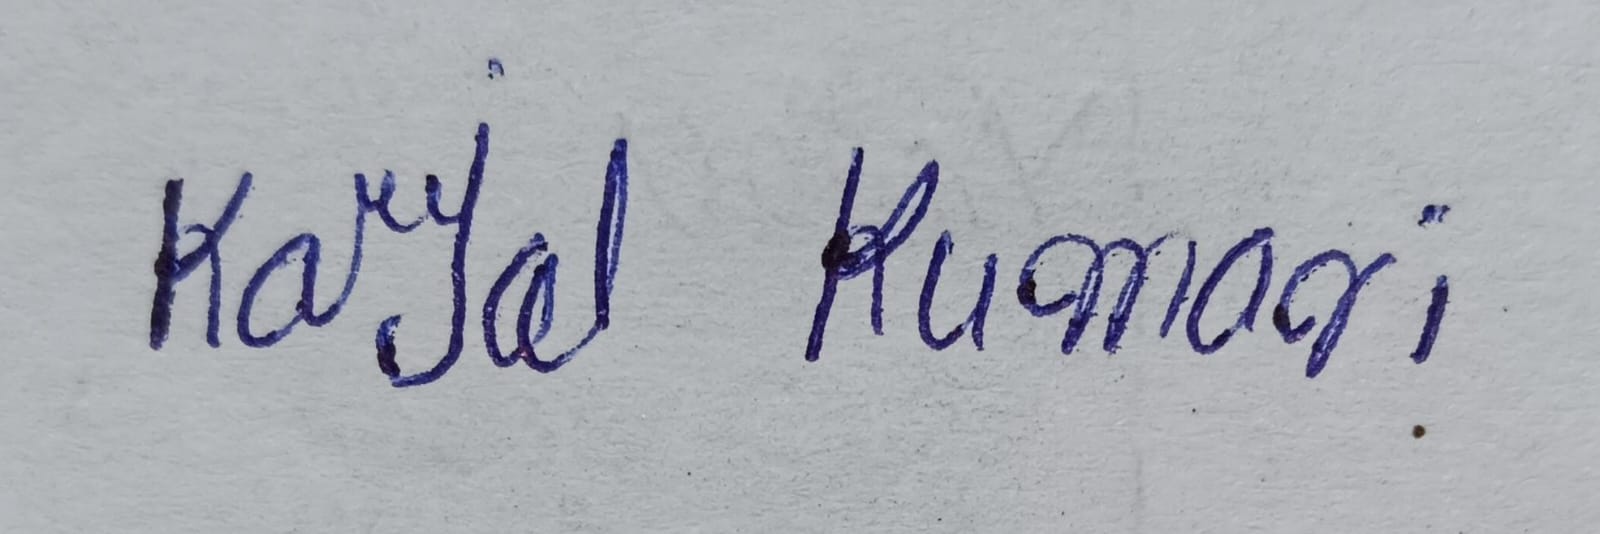 Karjal Kumari